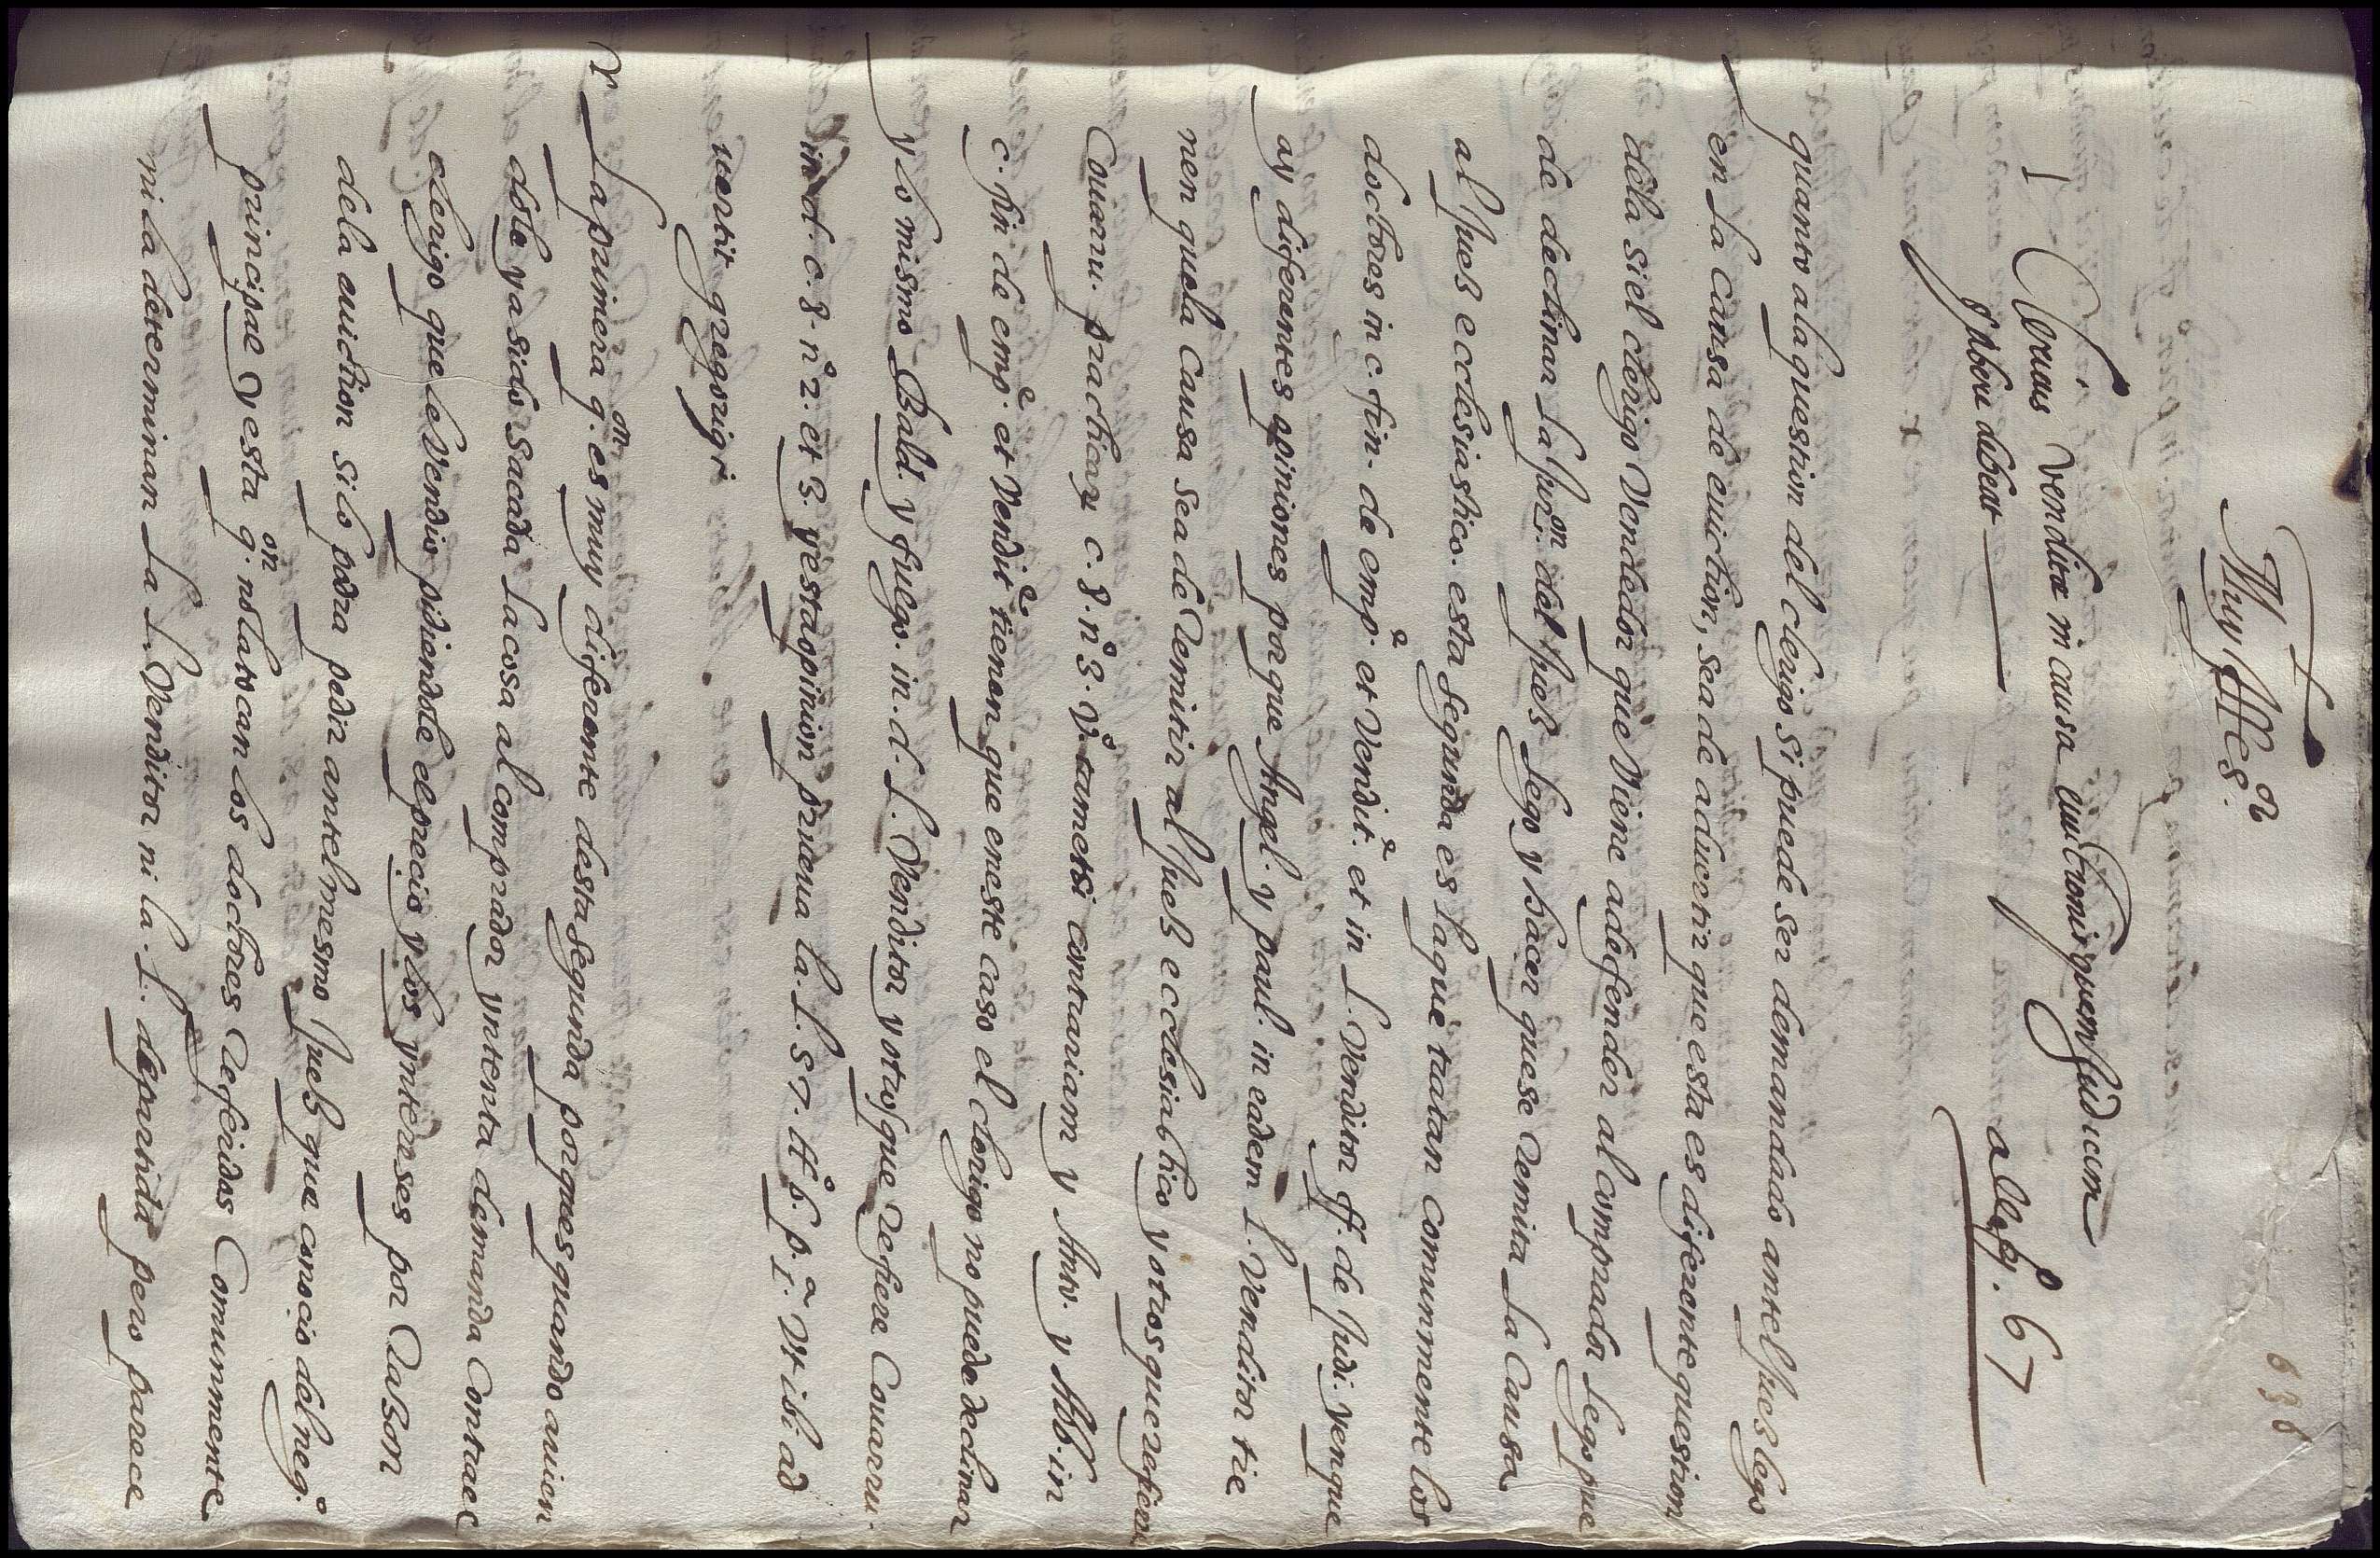 638
Muy Ill.es
1 Clericus venditor in causa euictionis quem Judicem
subire debeat ———— alleg.o 67
quanto a la question del clerigo si puede ser demandado antel Juez lego
en la causa de euiction, sea de aduertir que esta es diferente question
dela si el clerigo Vendedor que Viene a defender al comprador lego pue
de declinar la Jur.on del Juez lego y hacer que se Remita la Causa
al Juez ecclesiastico. esta segunda es la que tratan comunmente los
doctores in c. fin. de emp.e et Vendit.e et in l. Venditor ff. de Judi. y en que
ay diferentes opiniones porque Angel. y paul. in eadem l. Venditor tie
nen que la Causa sea de Remitir al Juez ecclesiastico y otros que refiere
Couarru. practicar. c. 8. n.o 3. v.o tametsi contrariam y Anto. y Abb. in
c. fin. de emp.e et Vendit.e tienen que en este caso el clerigo no puede declinar
y lo mismo Bald. y fulgo. in. d. l. Venditor y otros que Refiere Couarru.
in d. c. 8. n.o 2. et 3. y esta opinion prueua la. l. 57. tt.o 6. p. 1.a Vt ibi ad
uertit gregorius
r La primera q.on es muy diferente desta segunda porque es quando auien
dole ya sido sacada la cosa al comprador yntenta demanda Contra el
clerigo que le Vendio pidiendole el precio y los yntereses por Razon
dela euiction si lo podra pedir antel mesmo Juez que conocio del neg.o
principal y esta q.on no la tocan los doctores Referidos Comunmente
ni la determinan la l. Venditor ni la. l. de partida pero parece